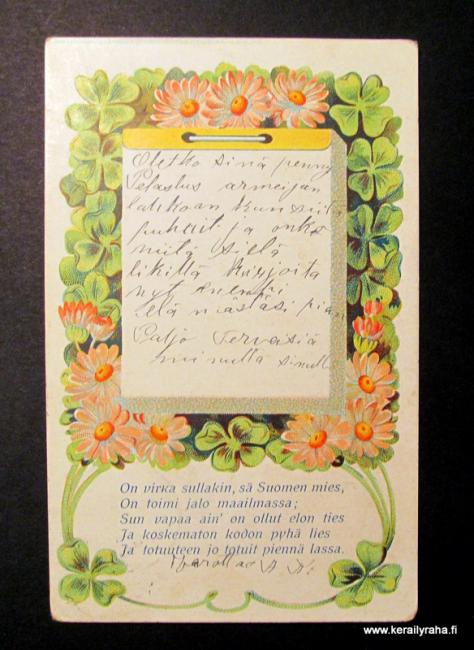 Oletko sinä penny
Pelastus armeijan
lahkoan kun siitä
puhuit ja onko
niitä siellä
likillä kirjoita
nyt enempi
elä mästäsi pian
Paljo Terveisiä
minulta sinulle
On virka sullakin, sä Suomen mies,
On toimi jalo maailmassa;
Sun vapaa ain' on ollut elon ties
Ja koskematon kodon pyhä lies
Ja totuuteen jo totuit piennä lassa.
A. K.
www.kerailyraha.fi